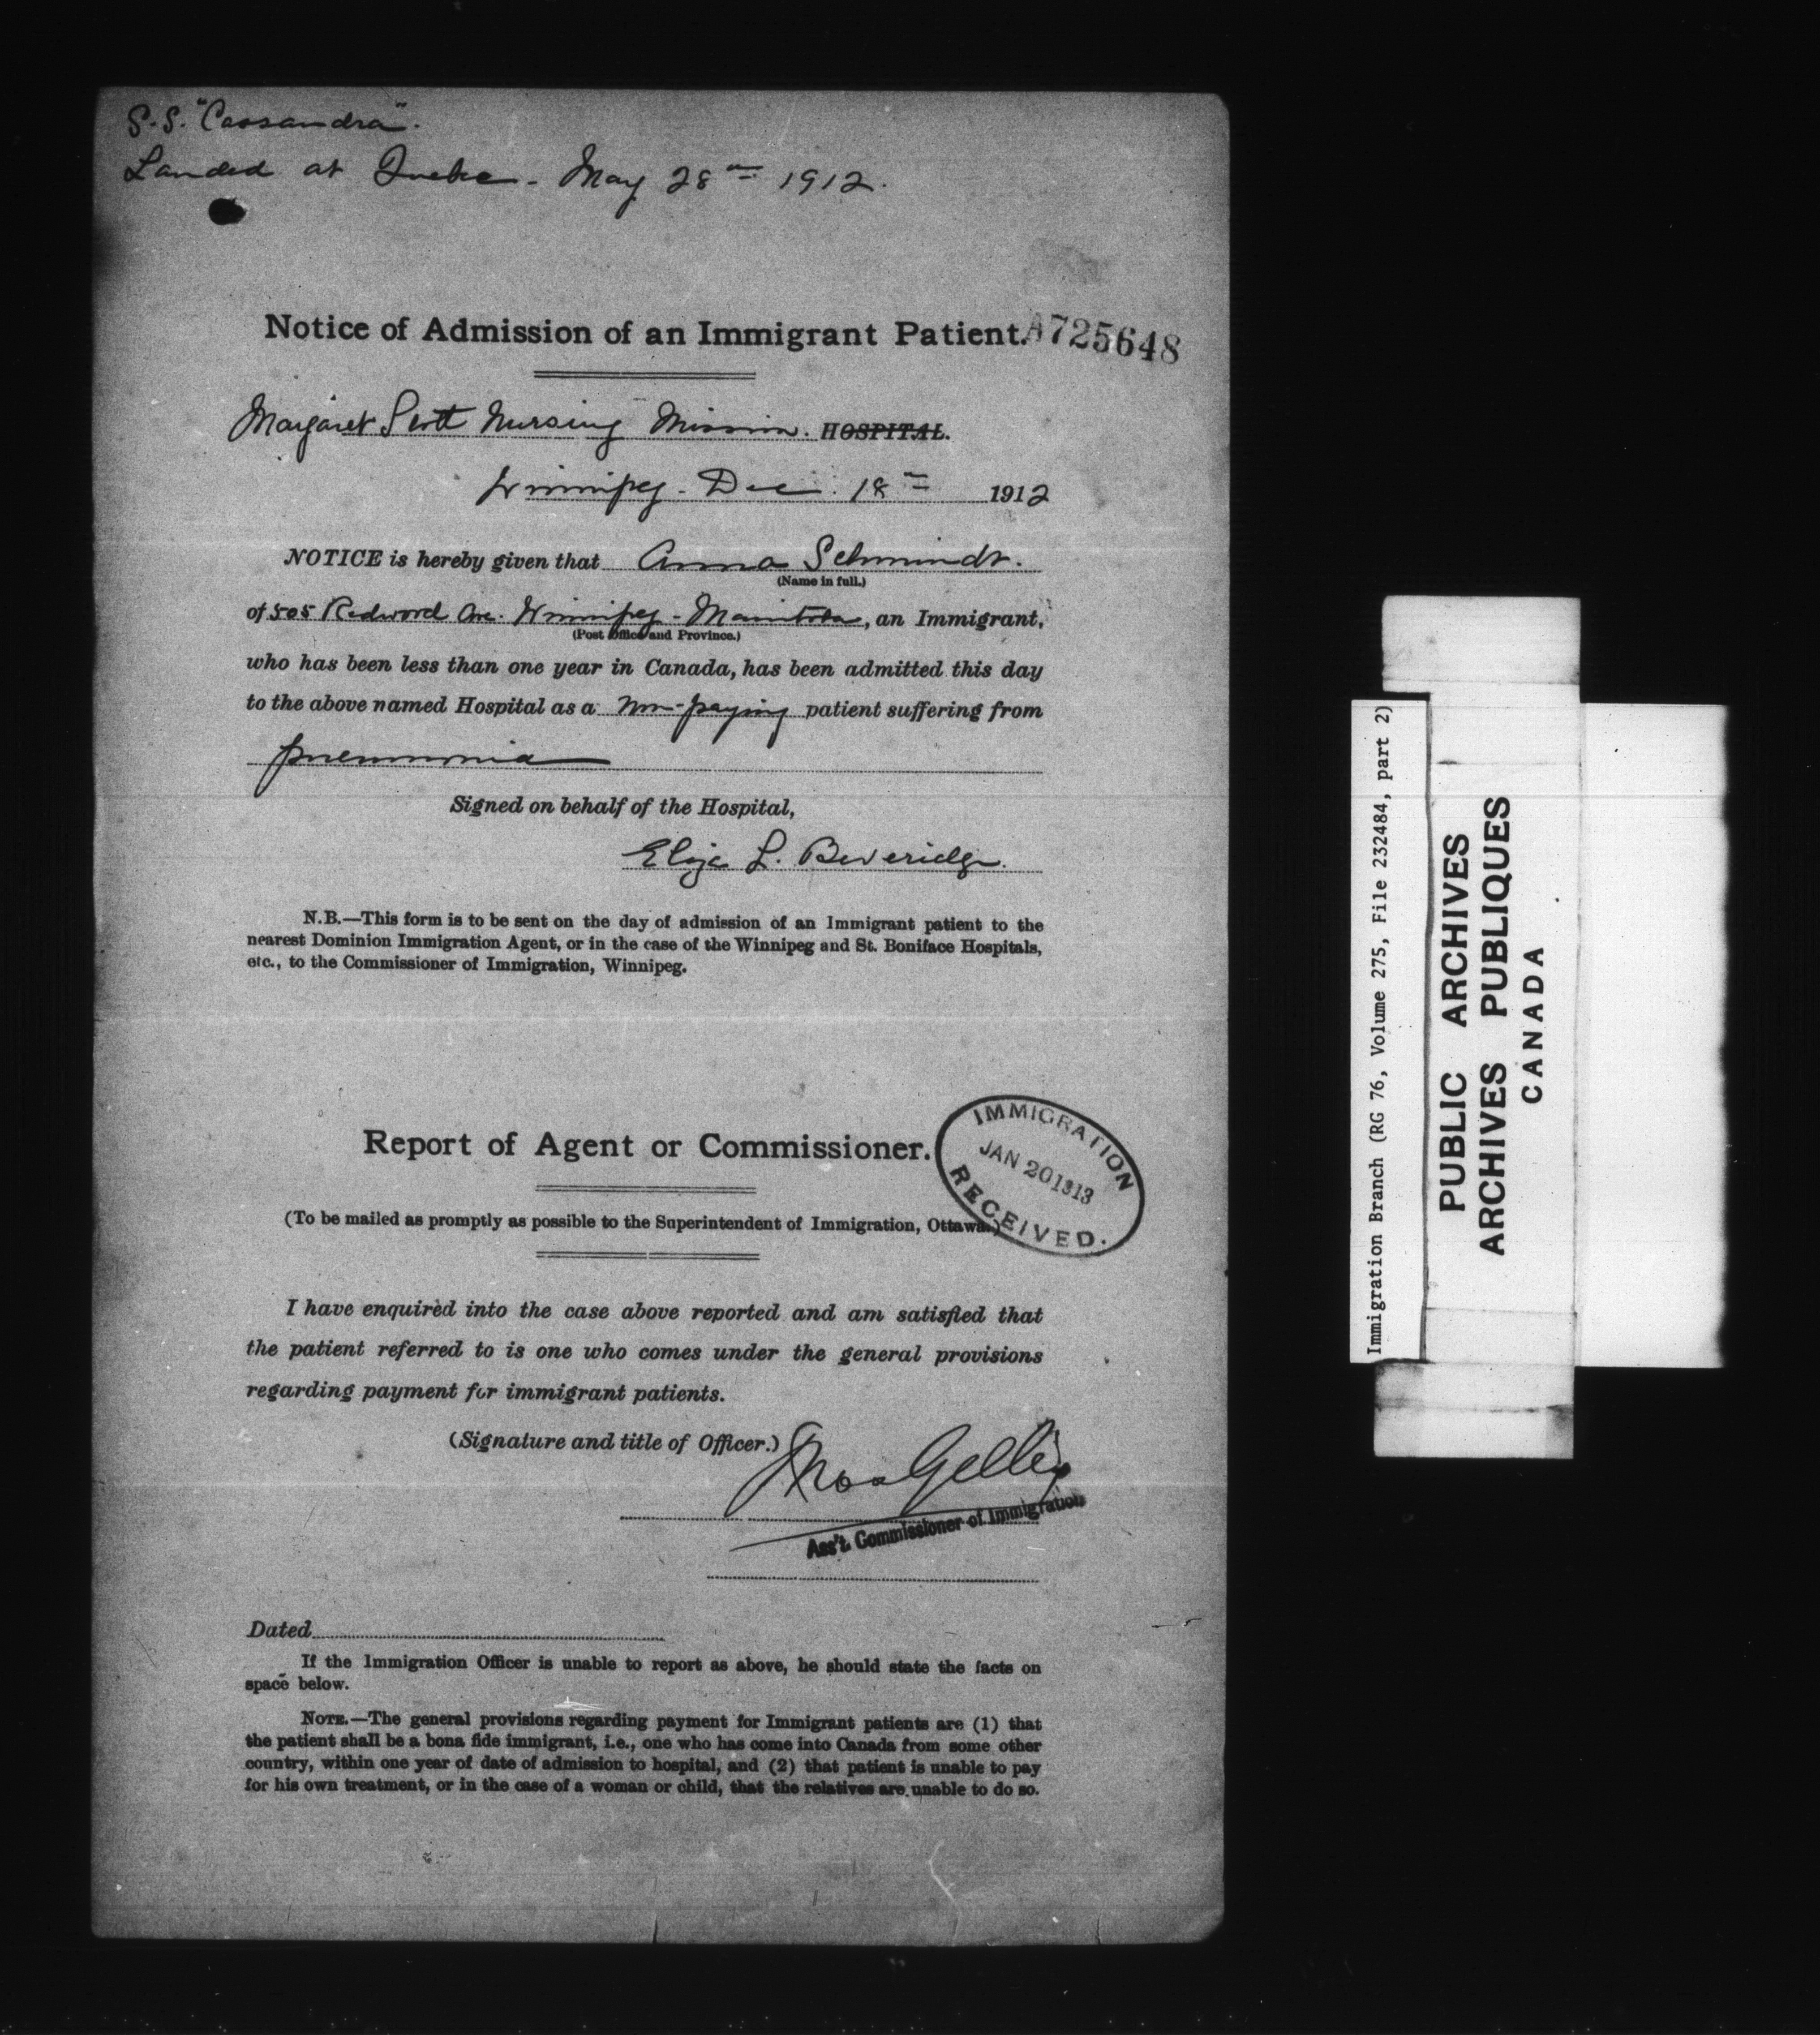 S.S. "Cassandra".
Landed at Quebec - May 28th 1912.
Notice of Admission of an Immigrant Patient.
A725648
Margaret Scott Nursing Mission. HOSPITAL.
Winnipeg - Dec. 18th 1912
NOTICE is hereby given that Anna Schmindt.
(Name in full.)
of 505 Redwood Ave. Winnipeg - Manitoba, an Immigrant,
(Post Office and Province.)
who has been less than one year in Canada, has been admitted this day
to the above named Hospital as a non-paying patient suffering from
pneumonia
Signed on behalf of the Hospital,
Eliza L. Beveridge.
N.B.—This form is to be sent on the day of admission of an Immigrant patient to the
nearest Dominion Immigration Agent, or in the case of the Winnipeg and St. Boniface Hospitals,
etc., to the Commissioner of Immigration, Winnipeg.
IMMIGRATION
JAN 20 1913
RECEIVED.
Report of Agent or Commissioner.
(To be mailed as promptly as possible to the Superintendent of Immigration, Ottawa.)
I have enquired into the case above reported and am satisfied that
the patient referred to is one who comes under the general provisions
regarding payment for immigrant patients.
(Signature and title of Officer.)
Thos Gelley
Ass't. Commissioner of Immigration
Dated
If the Immigration Officer is unable to report as above, he should state the facts on
space below.
NOTE.—The general provisions regarding payment for Immigrant patients are (1) that
the patient shall be a bona fide immigrant, i.e., one who has come into Canada from some other
country, within one year of date of admission to hospital, and (2) that patient is unable to pay
for his own treatment, or in the case of a woman or child, that the relatives are unable to do so.
Immigration Branch (RG 76, Volume 275, File 232484, part 2)
PUBLIC ARCHIVES
ARCHIVES PUBLIQUES
CANADA